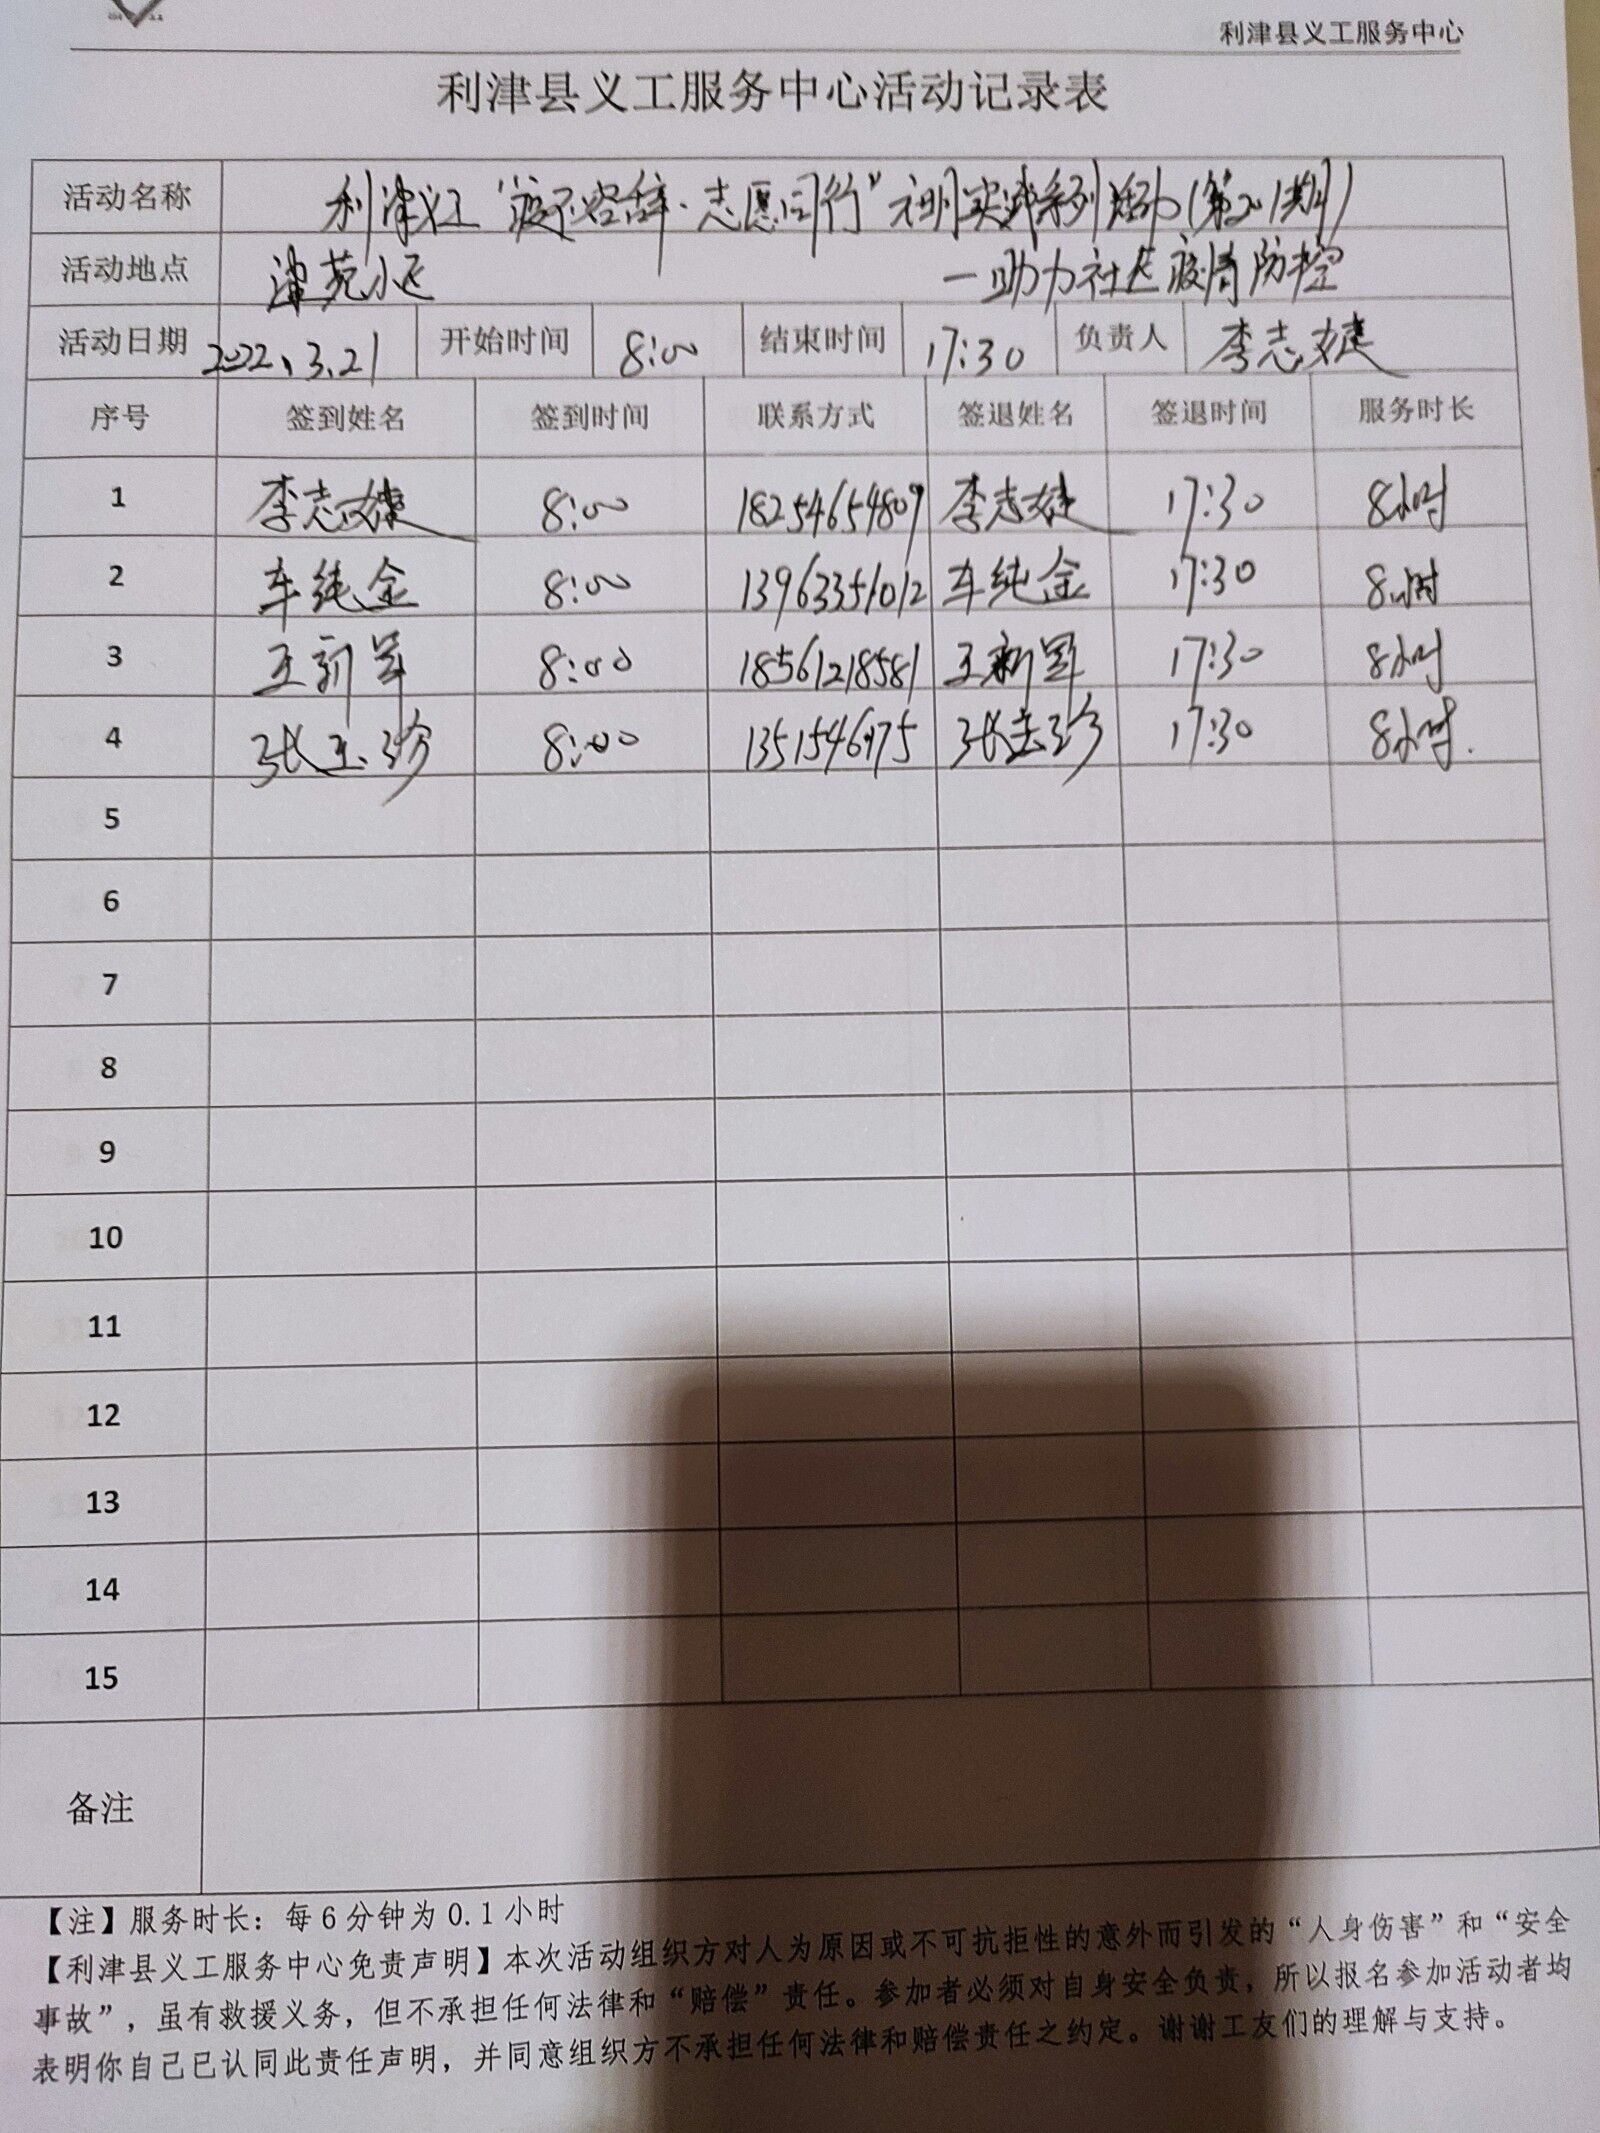 利津县义工服务中心
利津县义工服务中心活动记录表
活动名称 利津义工"疫不容辞·志愿同行"文明实践系列活动(第201期)
活动地点 津苑小区 —助力社区疫情防控
活动日期 2022.3.21 开始时间 8:00 结束时间 17:30 负责人 李志婕
序号 签到姓名 签到时间 联系方式 签退姓名 签退时间 服务时长
1 李志婕 8:00 18254654809 李志婕 17:30 8小时
2 车纯金 8:00 13963351012 车纯金 17:30 8小时
3 王新军 8:00 18561218581 王新军 17:30 8小时
4 张玉珍 8:00 张玉珍 17:30 8小时.
5
6
7
8
9
10
11
12
13
14
15
备注
【注】服务时长：每6分钟为0.1小时
【利津县义工服务中心免责声明】本次活动组织方对人为原因或不可抗拒性的意外而引发的“人身伤害”和“安全
事故”，虽有救援义务，但不承担任何法律和“赔偿”责任。参加者必须对自身安全负责，所以报名参加活动者均
表明你自己已认同此责任声明，并同意组织方不承担任何法律和赔偿责任之约定。谢谢工友们的理解与支持。